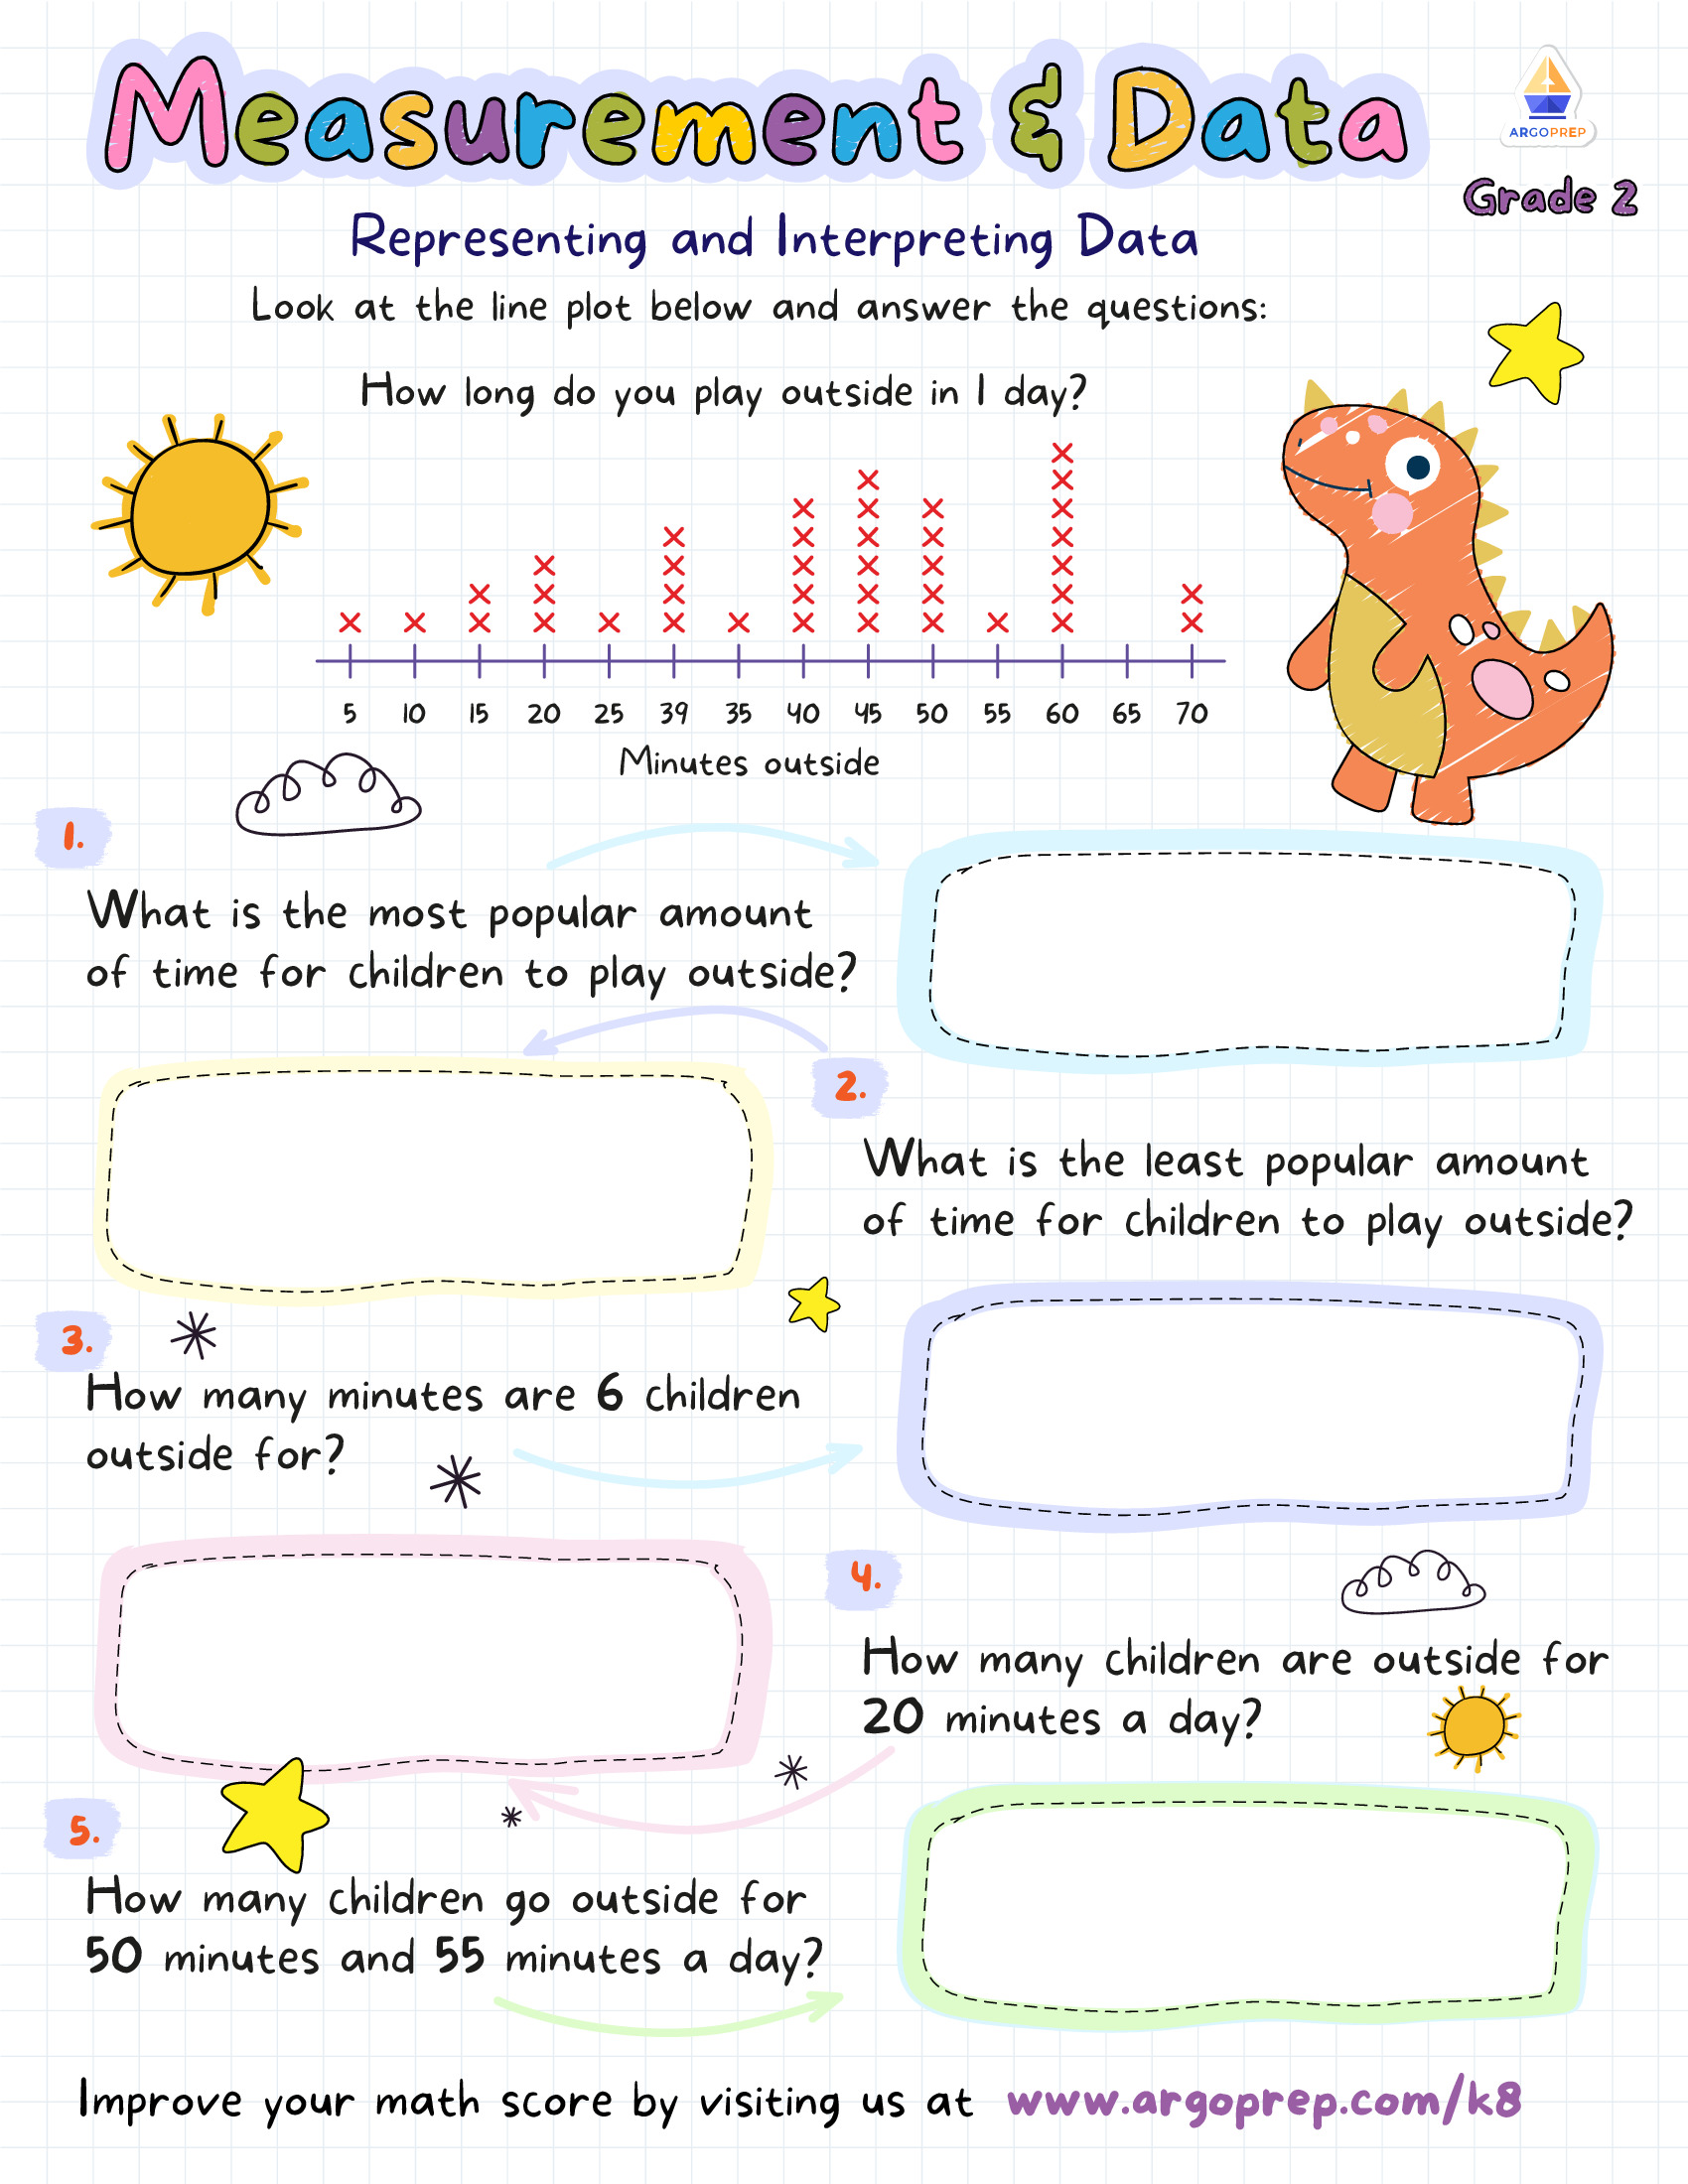 Measurement & Data
ARGOPREP
Grade 2
Representing and Interpreting Data
Look at the line plot below and answer the questions:
How long do you play outside in 1 day?
5 10 15 20 25 39 35 40 45 50 55 60 65 70
Minutes outside
1.
What is the most popular amount
of time for children to play outside?
2.
What is the least popular amount
of time for children to play outside?
3.
How many minutes are 6 children
outside for?
4.
How many children are outside for
20 minutes a day?
5.
How many children go outside for
50 minutes and 55 minutes a day?
Improve your math score by visiting us at www.argoprep.com/k8